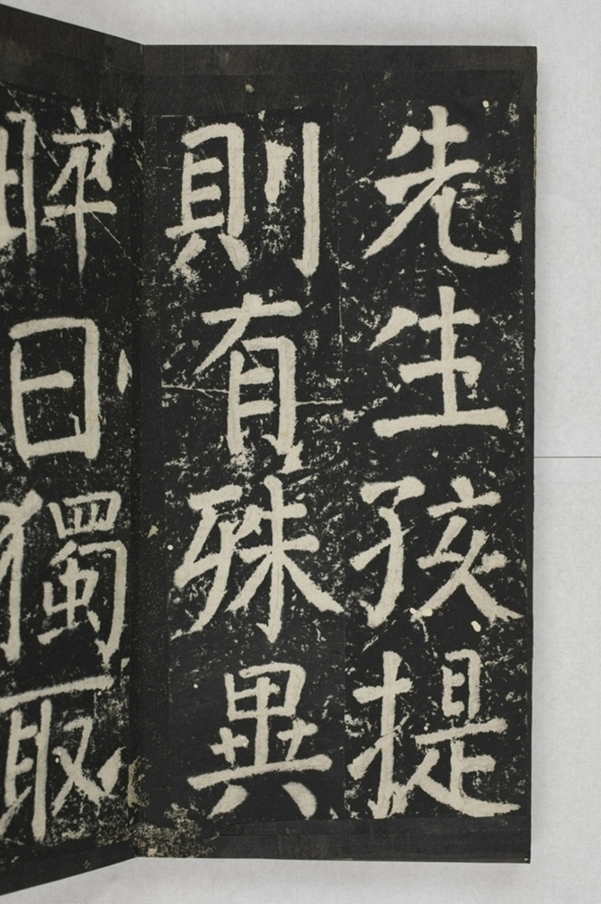 先生孩提
則有殊異
晬日獨取